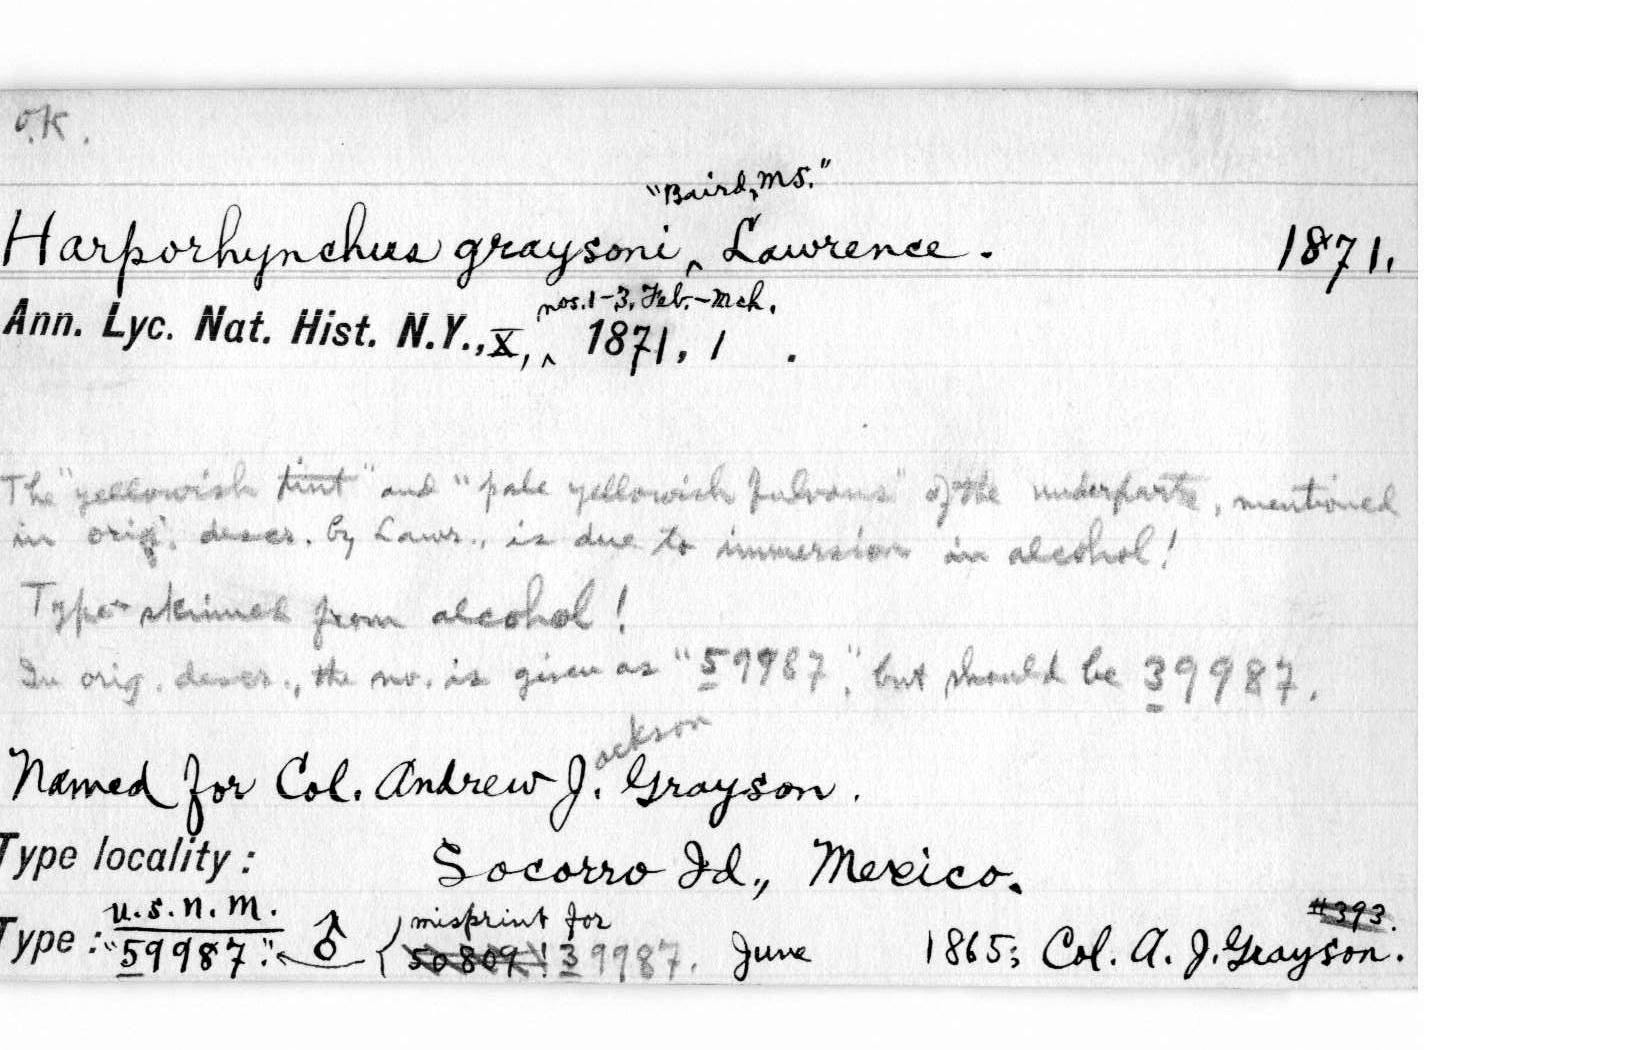 O.K.
"Baird, MS."
Harporhynchus graysoni ‸ Lawrence. 1871.
nos. 1-3, Feb.-Mch.
Ann. Lyc. Nat. Hist. N.Y., X, ‸ 1871, 1 .
The "yellowish tint" and "pale yellowish fulvous" of the underparts, mentioned
in orig. descr. by Lawr., is due to immersion in alcohol!
Type skinned from alcohol!
In orig. descr., the no. is given as "59987", but should be 39987.
ackson
Named for Col. Andrew J. Grayson.
Type locality: Socorro Id., Mexico.
U.S.N.M. misprint for #393
Type: "59987." ♂ { 50809! 39987. June 1865; Col. A. J. Grayson.